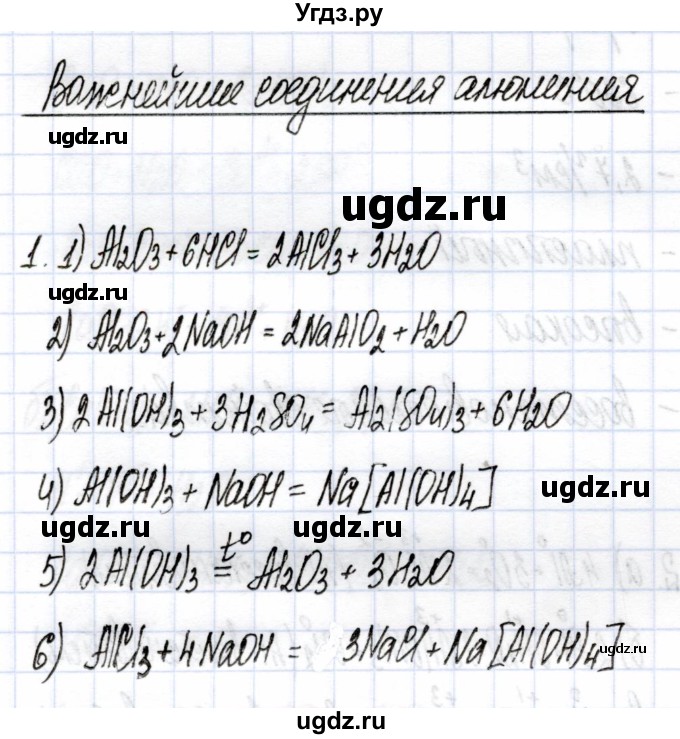 Угдз.ру
Важнейшие соединения алюминия
ugdz.ru
ugdz.ru
1. 1) Al₂O₃ + 6HCl = 2AlCl₃ + 3H₂O
ugdz.ru
2) Al₂O₃ + 2NaOH = 2NaAlO₂ + H₂O
3) 2Al(OH)₃ + 3H₂SO₄ = Al₂(SO₄)₃ + 6H₂O
4) Al(OH)₃ + NaOH = Na[Al(OH)₄]
ugdz.ru
ugdz.ru ugdz.ru
5) 2Al(OH)₃ =t° Al₂O₃ + 3H₂O
6) AlCl₃ + 4NaOH = 3NaCl + Na[Al(OH)₄]
ugdz.ru
ugdz.ru